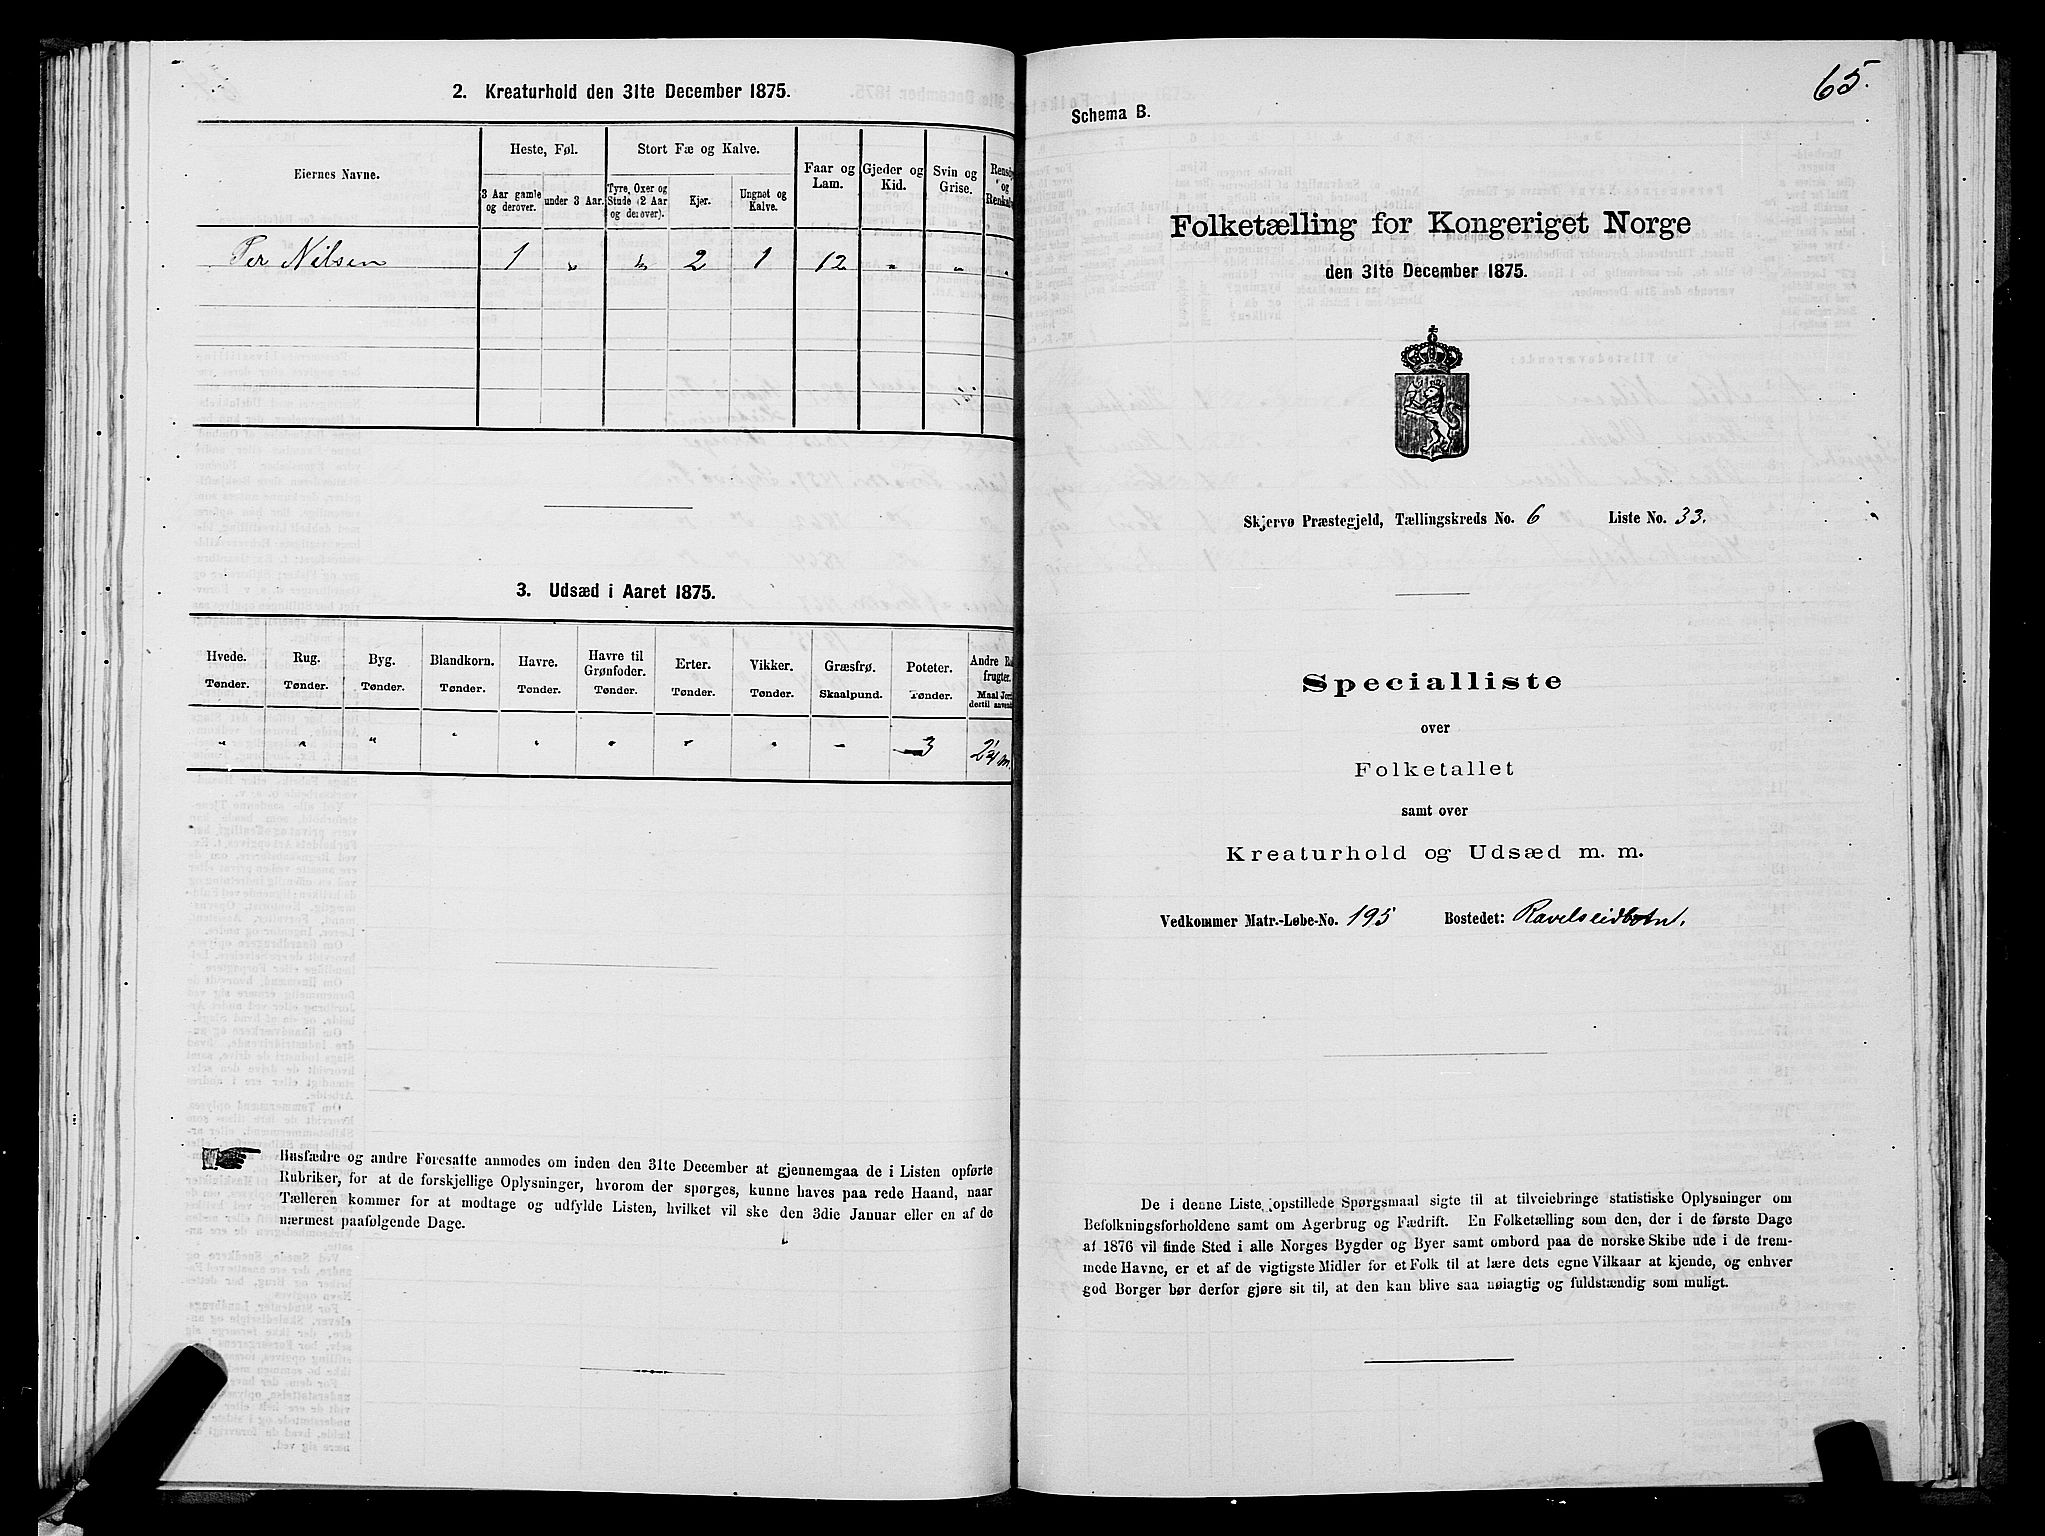 2. Kreaturhold den 31te December 1875.
Eiernes Navne.
Heste, Føl.
Stort Fæ og Kalve.
Faar og Lam.
Gjeder og Kid.
Svin og Grise.
og
3 Aar gamle og derover.
under 3 Aar.
Tyre, Oxer og Stude (2 Aar og derover).
Kjør.
Ungnøt og Kalve.
Per Nilsen 1 " " 2 1 12 " " "
3. Udsæd i Aaret 1875.
Hvede. Rug. Byg. Blandkorn. Havre. Havre til Grønfoder. Erter. Vikker. Græsfrø. Poteter. Andre
frugter.
Tønder. Tønder. Tønder. Tønder. Tønder. Tønder. Tønder. Tønder. Skaalpund. Tønder. Maal
dertil
" " " " " " " " " 3
Husfædre og andre Foresatte anmodes om inden den 31te December at gjennemgaa de i Listen opførte
Rubriker, for at de forskjellige Oplysninger, hvorom der spørges, kunne haves paa rede Haand, naar
Tælleren kommer for at modtage og udfylde Listen, hvilket vil ske den 3die Januar eller en af de
nærmest paafølgende Dage.
65.
Schema B.
Folketælling for Kongeriget Norge
den 31te December 1875.
Skjervø Præstegjeld, Tællingskreds No. 6 Liste No. 33.
Specialliste
over
Folketallet
samt over
Kreaturhold og Udsæd m. m.
Vedkommer Matr.-Løbe-No. 195 Bostedet: Ravelseidbotn.
De i denne Liste opstillede Spørgsmaal sigte til at tilveiebringe statistiske Oplysninger om
Befolkningsforholdene samt om Agerbrug og Fædrift. En Folketælling som den, der i de første Dage
af 1876 vil finde Sted i alle Norges Bygder og Byer samt ombord paa de norske Skibe ude i de frem-
mede Havne, er et af de vigtigste Midler for et Folk til at lære dets egne Vilkaar at kjende, og enhver
god Borger bør derfor gjøre sit til, at den kan blive saa nøiagtig og fuldstændig som muligt.